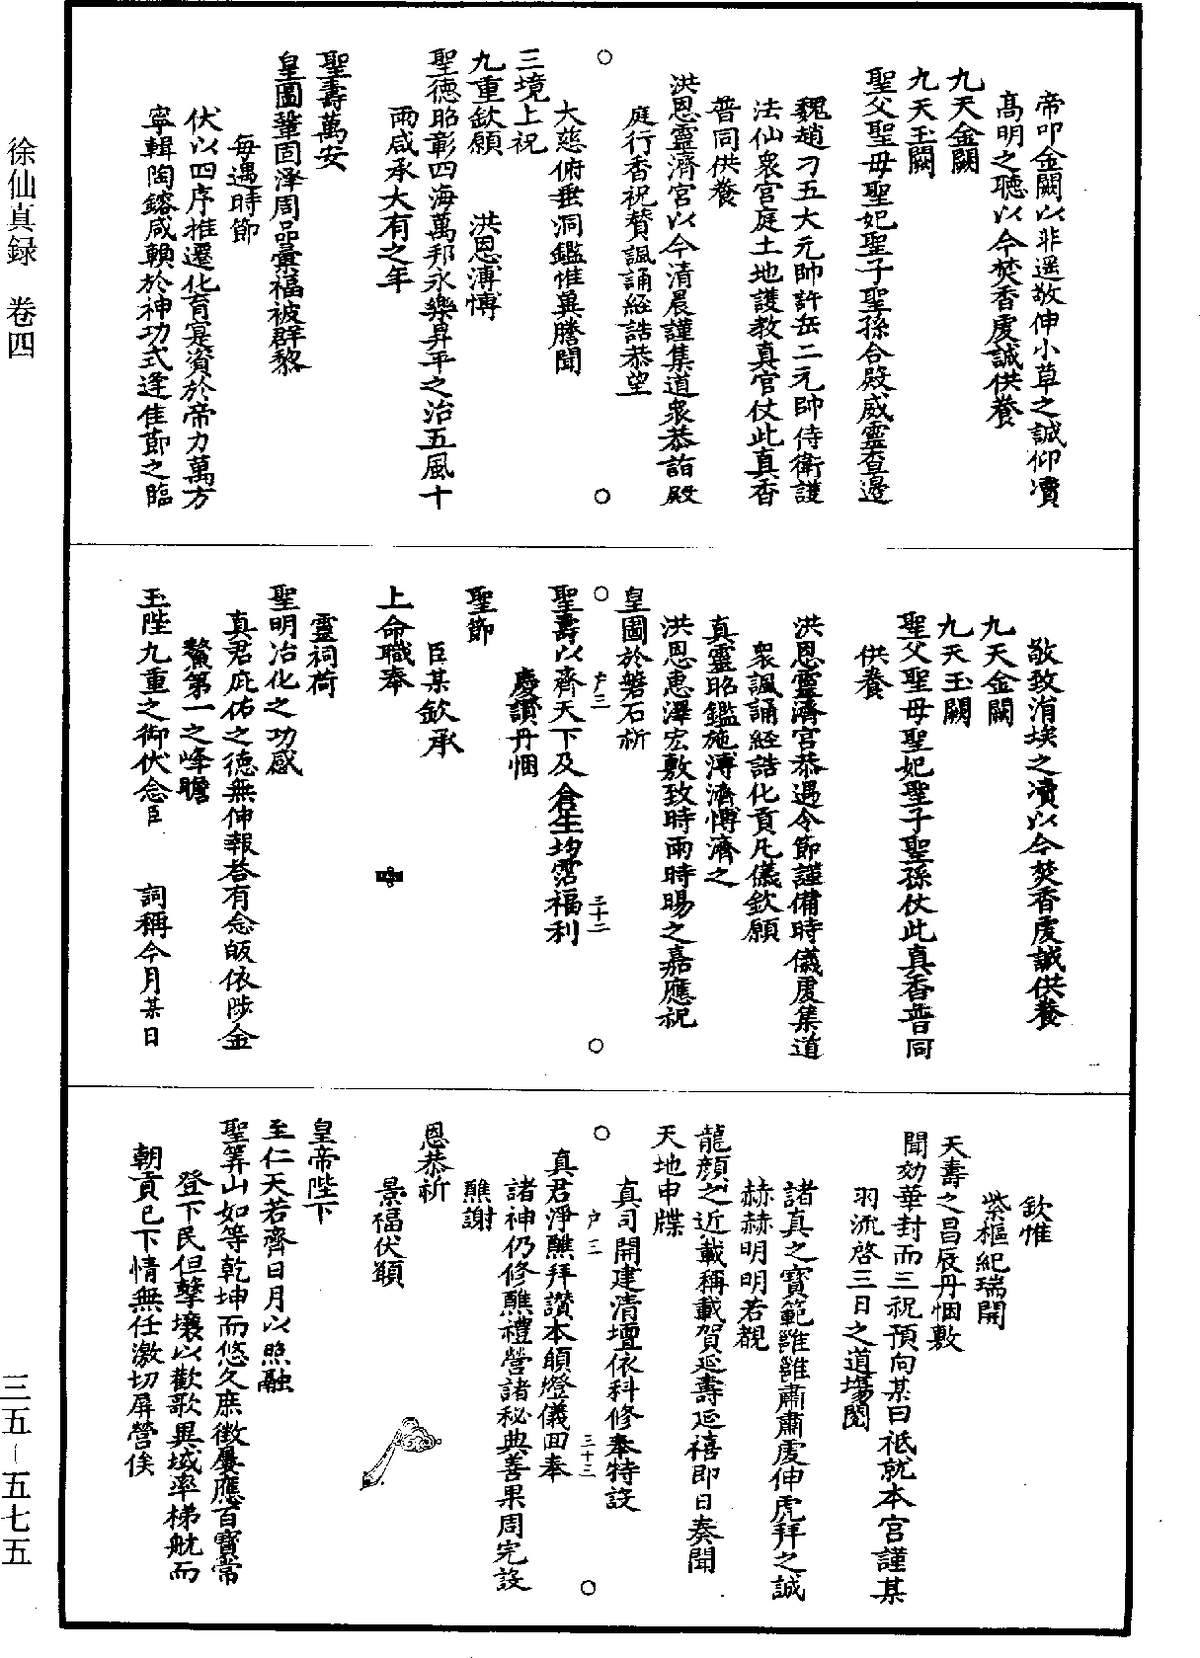 帝叩金闕以非遥敬伸小草之誠仰瀆
高明之聽以今焚香虔誠供養
九天金闕
九天玉闕
聖父聖母聖妃聖子聖孫合殿威靈查邊
魏趙刁五大元帥許岳二元帥侍衛護
法仙衆宮庭土地護教真官仗此真香
普同供養
洪恩靈濟宮以今清晨謹集道衆恭詣殿
庭行香祝賛諷誦經誥恭望
大慈俯垂洞鑑惟冀騰聞
三境上祝
九重欽願 洪恩溥博
聖德昭彰四海萬邦永樂昇平之治五風十
雨咸承大有之年
聖壽萬安
皇圖鞏固泽周品彙福被群黎
每遇時節
伏以四序推遷化育寔資於帝力萬方
寧輯陶鎔咸賴於神功式逢佳節之臨
敬致涓埃之瀆以今焚香虔誠供養
九天金闕
九天玉闕
聖父聖母聖妃聖子聖孫仗此真香普同
供養
洪恩靈濟宮恭遇令節謹備時儀虔集道
衆諷誦經誥化貢凡儀欽願
真靈昭鑑施溥濟博濟之
洪恩恵澤宏敷致時雨時暘之嘉應祝
皇圖於磐石祈
聖壽以齊天下及倉生均霑福利
慶讚丹悃
聖節
臣某欽承
上命職奉
靈祠荷
聖明治化之功感
真君庇佑之德無伸報荅有念皈依陟金
鰲第一之峰瞻
玉陛九重之御伏念臣 詞稱今月某日
欽惟
紫樞紀瑞開
天壽之昌辰丹悃敷
聞効華封而三祝預向某日祗就本宮謹某
羽流啓三日之道場閱
諸真之寳範雝雝肅肅虔伸虎拜之誠
赫赫明明若覩
龍顔之近載稱載賀延壽延禧即日奏聞
天地申牒
真司開建清壇依科修奉特設
真君淨醮拜讃本願燈儀囬奉
諸神仍修醮禮營諸秘典善果周完設
醮謝
恩恭祈
景福伏願
皇帝陛下
至仁天若齊日月以照融
聖筭山如等乾坤而悠久庶徵屢應百寳常
登下民但擊壤以歡歌異域率梯航而
朝貢已下情無任激切屏營俟
户三 三十二
户三 三十三
徐仙真録 卷四
三五－五七五